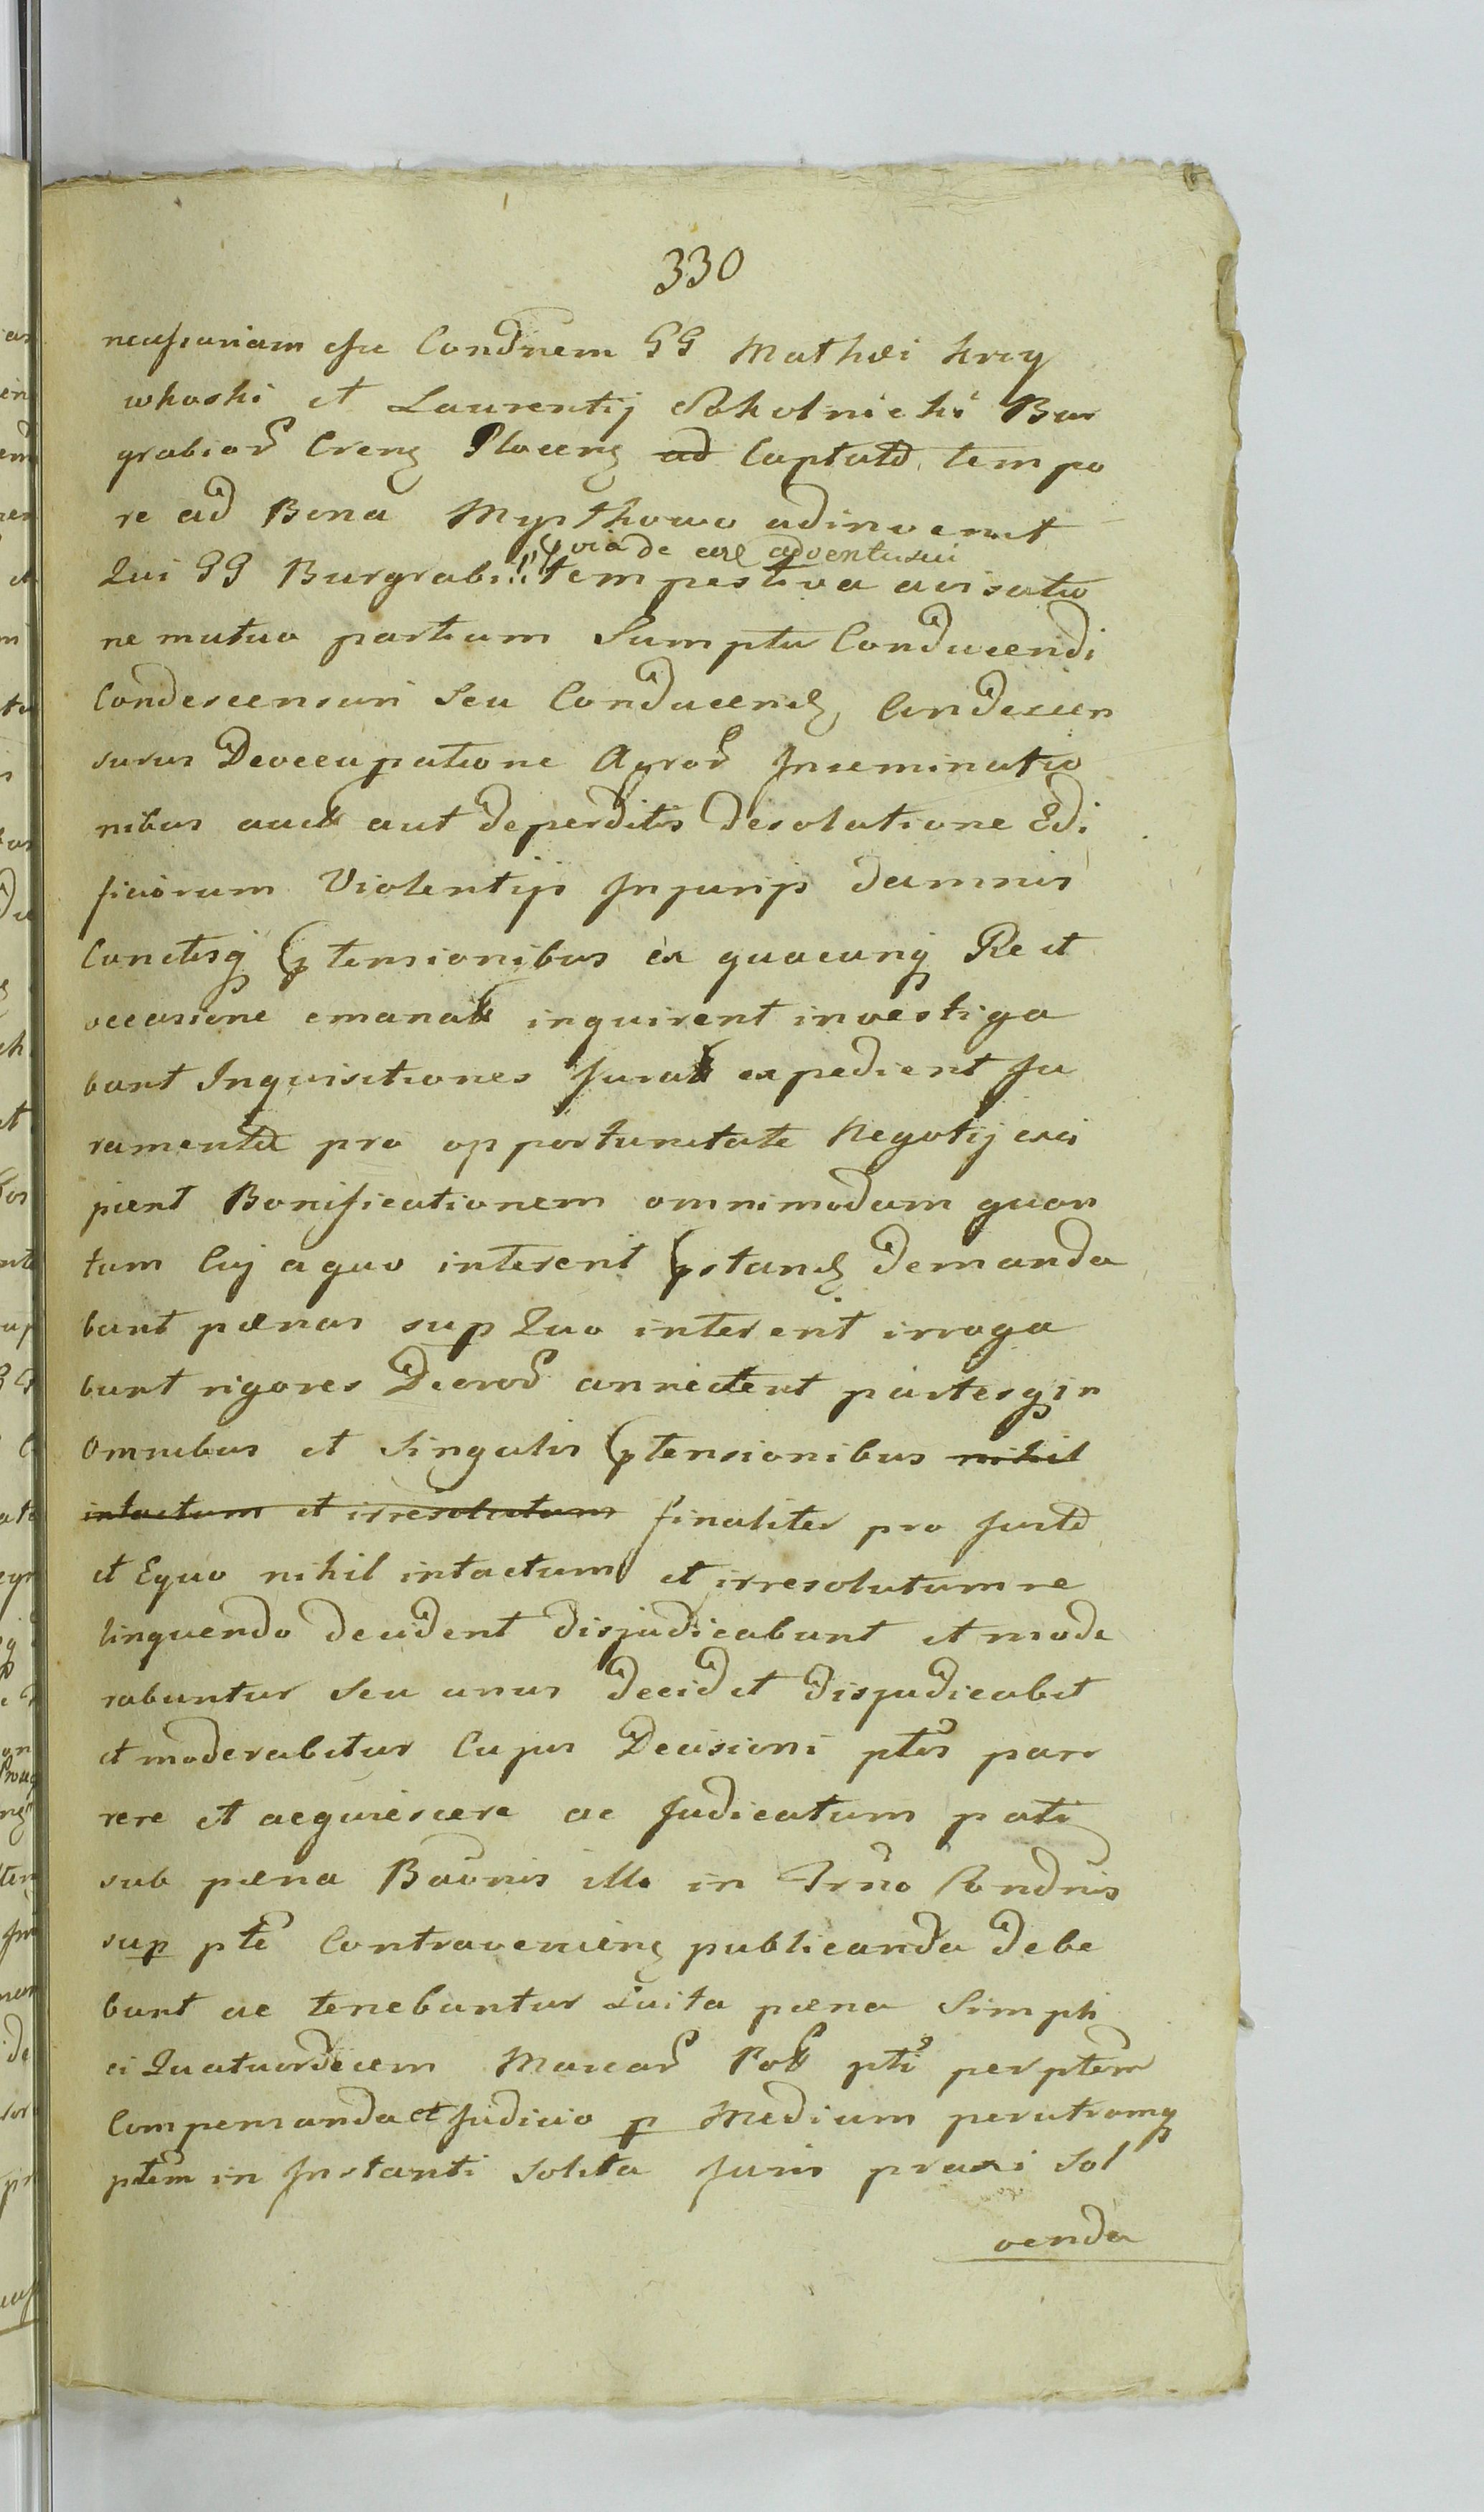 330
necessariam esse Condnem GG Mathæi Krzy
wkoski et Laurentij Skolnicki Bur
grabior Crens Plocens ad Captato tempo
re ad Bona Mysthowo adinvenit
prævia de eorl adventu sui
Qui GG Burgrabii tempestiva avisatio
ne mutuo partium Sumptu Conducendi
Condescensuri Seu Conducens, Condescen
surus Deoccupatione Agror Inseminatio
nibus auct aut deperditis desolatione Edi
ficiorum Violentijs Injurijs damnis
Cunctisq ptensionibus ex quacunq Re et
occasione emanat inquirent investiga
bunt Inquisitiones Jurat expedient Ju
ramenta pro opportunitate Negotij exci
pient Bonificationem omnimodam quan
tum Cuj a quo interent pstands Demanda
bunt pænas sup Quo interent irroga
bunt rigores Decror annectent partesq in
Omnibus et Singulis ptensionibus nihil
intactum et irresolutum finaliter pro Justo
et Equo nihil intactum et irresolutum re
linquendo decident disjudicabunt et mode
rabuntur Seu unus Decidet Disjudicabit
et moderabitur Cujus Decisioni ptes parr
rere et acquiescere ac Judicatum pati
sub pæna Baonis illo in Trno Condnis
sup pte Contraveniens publicanda Debe
bunt ac tenebuntur Luita pæna Simpli
ci Quatuordecem Marcar Pol pti per ptem
Compensanda et Judicio p Medium per utramq
ptem in Instanti Solita Juris praxi Sol
venda